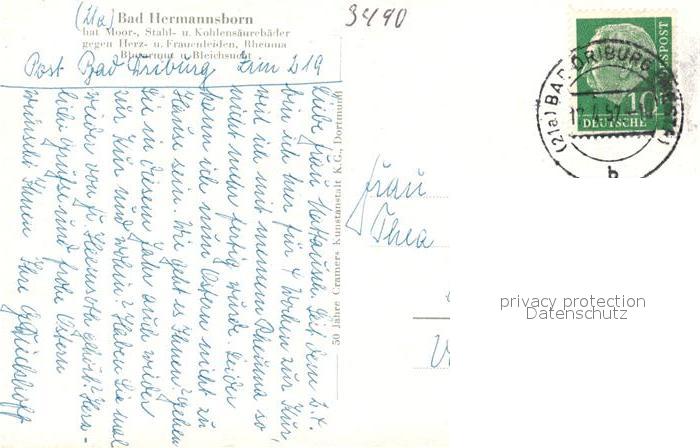 (21a) Bad Hermannsborn
hat Moor-, Stahl- u. Kohlensäurebäder
gegen Herz- u. Frauenleiden, Rheuma
Blutarmut u. Bleichsucht
Post Bad Driburg Zim 219
Liebe Frau Seit dem 2.4.
bin ich hier für 4 Wochen zur Kur
weil ich mit meinem Rheuma so
nicht mehr fertig wurde. Leider
kann ich nun Ostern nicht zu
Hause sein. Wie geht es Ihnen? gehen
Sie in diesem Jahr auch wieder
zur Kur und wohin? Haben Sie mal
wieder von Fr. gehört? Herz-
liche Grüße und frohe Ostern
wünscht Ihnen Ihre
50 Jahre Cramers Kunstanstalt K.G., Dortmund
3490
Frau
Thea
DEUTSCHE
BUNDESPOST
10
(21a) BAD DRIBURG
b
privacy protection
Datenschutz